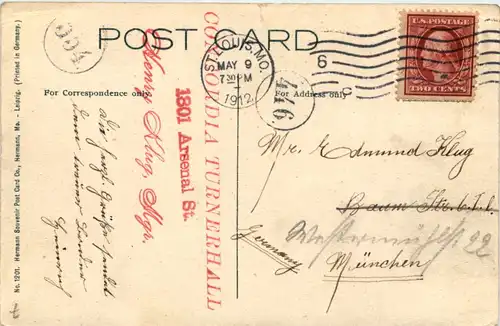 POST CARD
For Correspondence only.
For Address only
ST. LOUIS, MO.
MAY 9
7 30 PM
1912
6
C
U.S. POSTAGE
TWO CENTS
CONCORDIA TURNERHALL
1801 Arsenal St.
Henry Klug, Mgr.
Mr. Edmund Klug
Baum Str.
Westermühlst. 22
München
Germany
Die herzl. Grüße sendet
Heinrich
No. 1201. Hermann Souvenir Post Card Co., Hermann, Mo. - Leipzig. (Printed in Germany.)